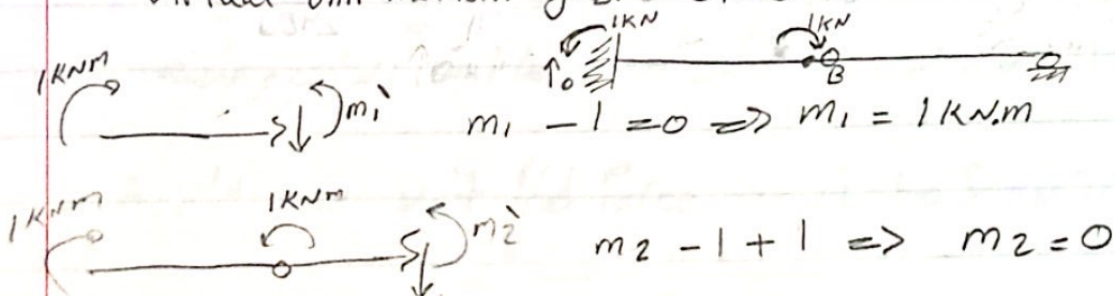 1KN 1KN
↑0 B
1KNM m1` m1 - 1 = 0 => m1 = 1 KN.m
1KNM 1KNM m2` m2 - 1 + 1 => m2 = 0